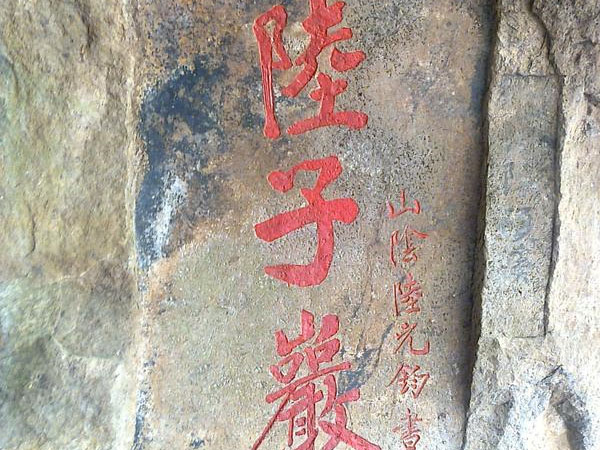 陸子巖
山陰陸光鈞書